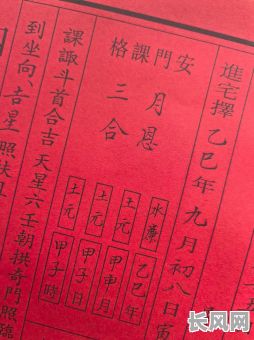 進宅擇乙巳年九月初八日寅
安門課格
月恩
三合
水
乙巳年
土元
甲申月
土元
甲子日
土元
甲子時
課諏斗首合吉天星六壬朝拱奇門照臨
到坐向吉星照扶
长风网
cfw.cn